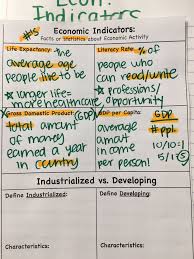 Econ.
Indicators
#'s
Economic Indicators:
Facts or Statistics about Economic Activity
Life Expectancy: the
average age
people live to be
* longer life=
more healthcare
Literacy Rate: % of
people who
can read/write
* professions/
opportunity
Gross Domestic Product: (GDP)
total amount
of money
earned a year
in country
GDP per Capita:
average
amount
income
per person!
GDP
# ppl.
10/10=1
5/10=.5
Industrialized vs. Developing
Define Industrialized:
Define Developing:
Characteristics:
Characteristics: